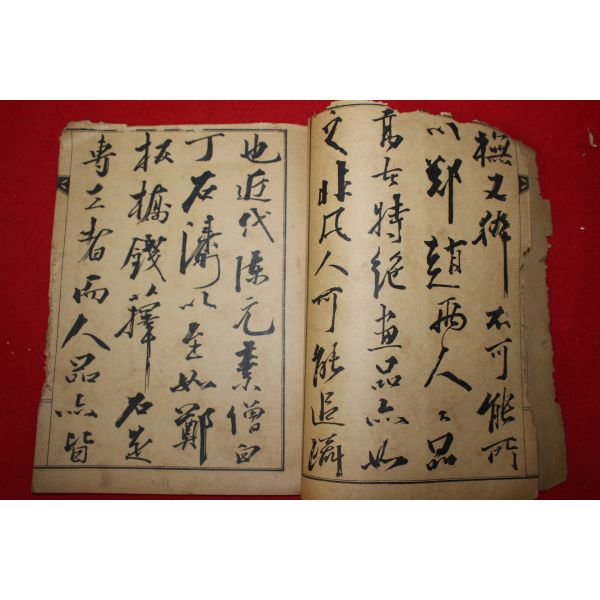 橅又不可能所
以鄭趙兩人〻品
高古特絶畫品亦如
之非凡人可能追躡
也近代陳元素僧白
丁石濤以至如鄭
板橋錢籜石是
專工者而人品亦皆